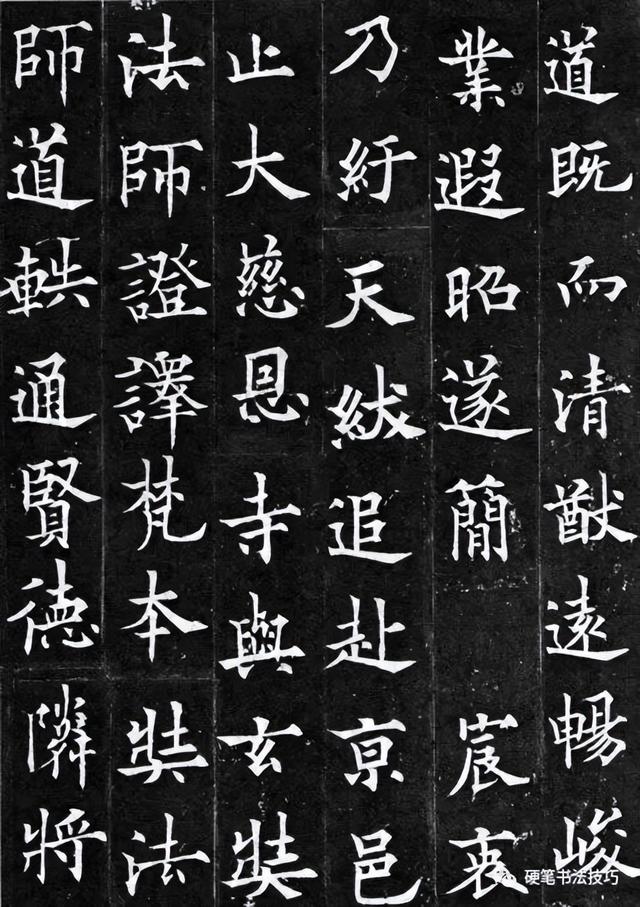 道既而清猷遠暢峻
業遐昭遂簡　宸衷
乃紆　天紱追赴亰邑
止大慈恩寺與玄奘
法師證譯梵本奘法
師道軼通賢德隣將
硬笔书法技巧